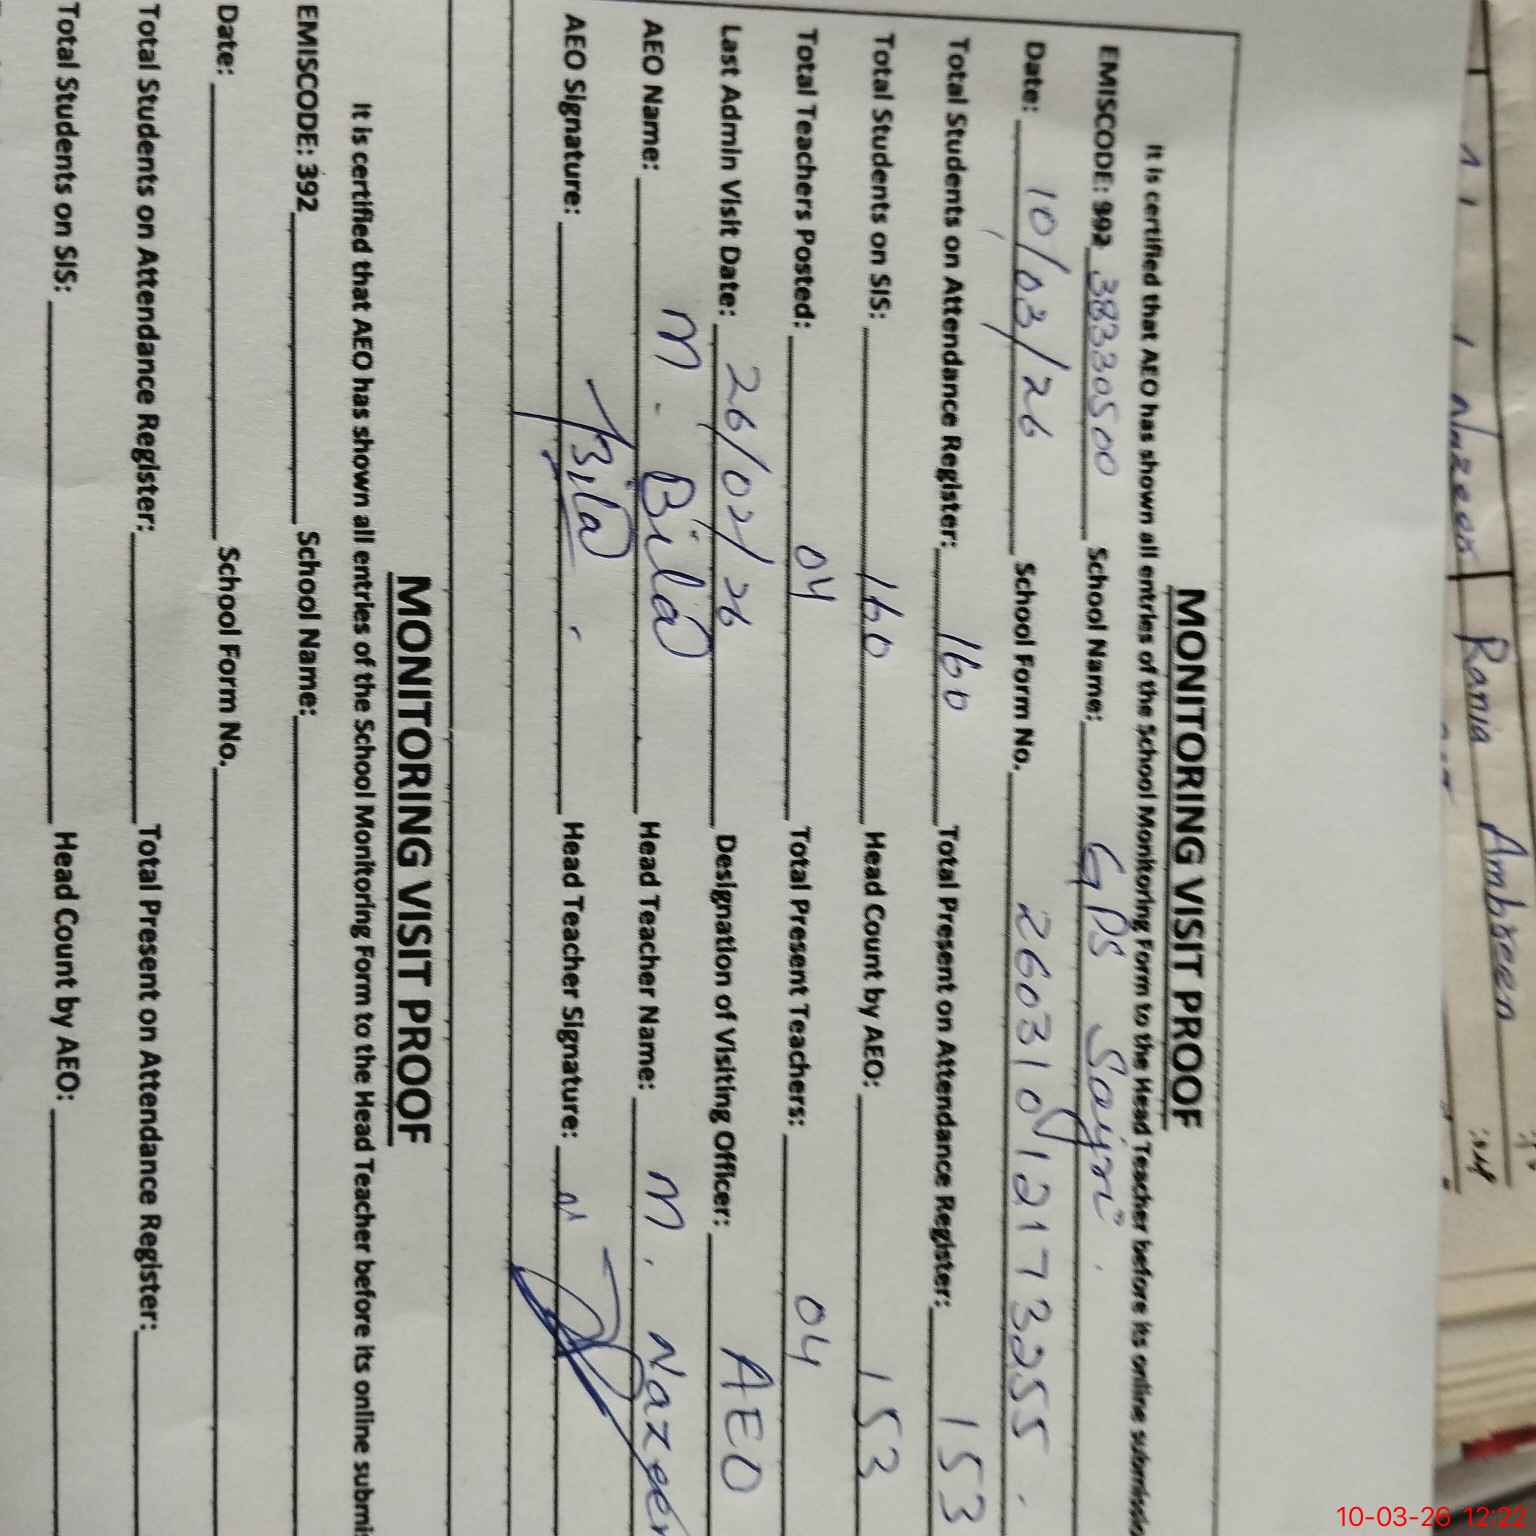 MONITORING VISIT PROOF
It is certified that AEO has shown all entries of the School Monitoring Form to the Head Teacher before its online submissio
EMISCODE: 392 38330500 School Name: GPS Saijni.
Date: 10/03/26 School Form No. 26031012173255.
Total Students on Attendance Register: 160 Total Present on Attendance Register: 153
Total Students on SIS: 160 Head Count by AEO: 153
Total Teachers Posted: 04 Total Present Teachers: 04
Last Admin Visit Date: 26/02/26 Designation of Visiting Officer: AEO
AEO Name: M. Bilal Head Teacher Name: M. Nazeer
AEO Signature: Bilal Head Teacher Signature:
MONITORING VISIT PROOF
It is certified that AEO has shown all entries of the School Monitoring Form to the Head Teacher before its online submis
EMISCODE: 392 School Name:
Date: School Form No.
Total Students on Attendance Register: Total Present on Attendance Register:
Total Students on SIS: Head Count by AEO:
Rania Ambreen
10-03-26 12:22